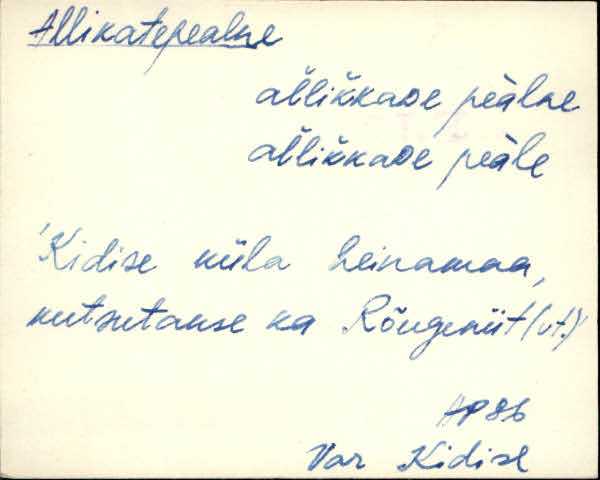 Allikatepealne
al̆lik̆kaᴅe peälne
al̆lik̆kaᴅe peäle
'Kidise küla heinamaa,
kutsutakse ka Rõugeniit (vt.)'
AP 86
Var Kidise